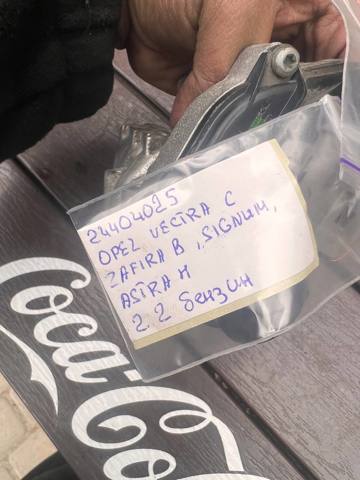 24404025
OPEL VECTRA C
ZAFIRA B, SIGNUM,
ASTRA H
2 2 бензин
Coca-Co